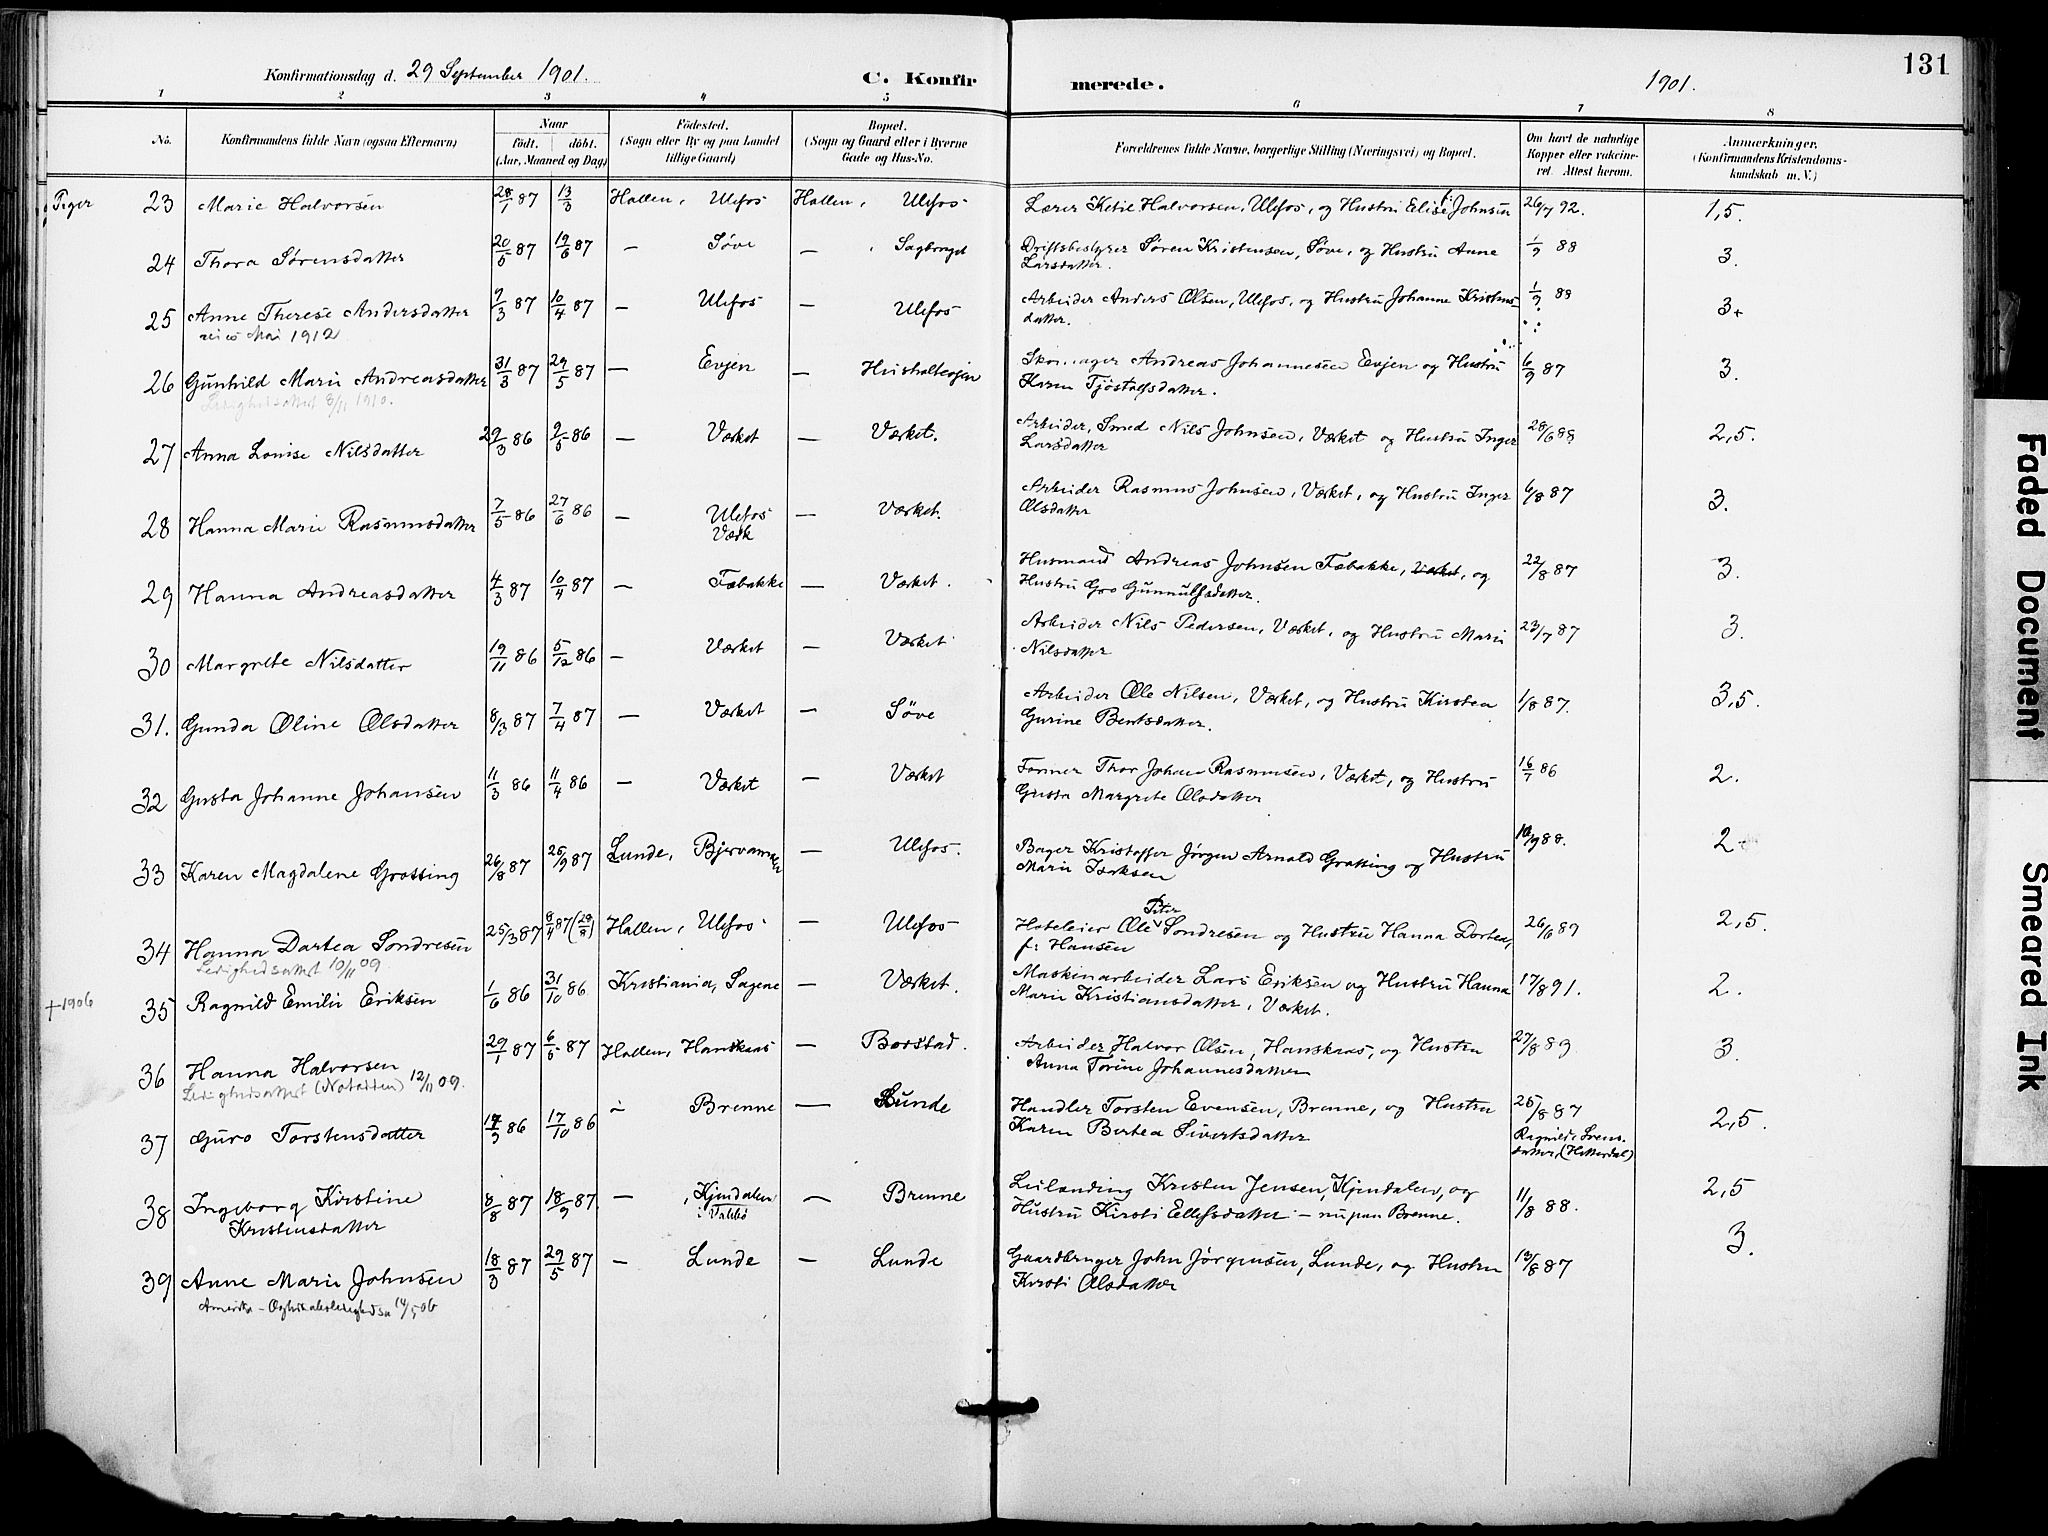 131
Konfirmationsdag d. 29 September 1901. C. Konfirmerede. 1901.
1 2 3 4 5 6 7 8
No. Konfirmandens fulde Navn (ogsaa Efternavn) Naar født. døbt. (Aar, Maaned og Dag) Fødested. (Sogn eller By og paa Landet tillige Gaard) Bopæl. (Sogn og Gaard eller i Byerne Gade og Hus-No. Forældrenes fulde Navne, borgerlige Stilling (Næringsvei) og Bopæl. Om havt de naturlige Kopper eller vakcineret. Attest herom. Anmærkninger. (Konfirmandens Kristendomskundskab m. V.)
Piger 23 Marie Halvorsen 28/1 87 13/3 Hollen, Ulefos Hollen, Ulefos Lærer Ketil Halvorsen, Ulefos, og Hustru Elise f: Johnsen 26/7 92. 1,5.
24 Thora Sørensdatter 20/5 87 19/6 87 — Søve — Sagbruget Driftsbestyrer Søren Kristensen, Søve, og Hustru Anne Larsdatter. 1/9 88 3.
25 Anne Therese Andersdatter 9/3 87 10/4 87 — Ulefos — Ulefos Arbeider Anders Olsen, Ulefos, og Hustru Johanne Kristensdatter. 1/9 88 3+
Mai 1912
26 Gunhild Marie Andreasdatter 31/3 87 29/5 87 — Evjen — Skomager Andreas Johannesen Evjen og Hustru Karen Tjøstolfsdatter. 6/9 87 3.
Ledighedsattest 8/11 1910.
27 Anna Lovise Nilsdatter 29/3 86 9/5 86 — Værket — Værket. Arbeider, Smed Nils Johnsen, Værket og Hustru Inger Larsdatter 28/6 88 2,5.
28 Hanna Marie Rasmusdatter 7/5 86 27/6 86 — Ulefos Værk — Værket. Arbeider Rasmus Johnsen, Værket, og Hustru Inger Olsdatter 6/8 87 3.
29 Hanna Andreasdatter 4/3 87 10/4 87 — Fæbakke — Værket. Husmand Andreas Johnsen Fæbakke, Værket, og Hustru Gro Gunnulfsdatter. 22/8 87 3.
30 Margrete Nilsdatter 19/11 86 5/12 86 — Værket — Værket Arbeider Nils Pedersen, Værket, og Hustru Marie Nilsdatter 23/7 87 3.
31. Gunda Oline Olsdatter 8/3 87 7/4 87 — Værket — Søve Arbeider Ole Nilsen, Værket, og Hustru Kirsten Gurine Bentsdatter. 1/8 87. 3,5.
32 Gusta Johanne Johansen 11/3 86 11/4 86 — Værket — Værket Former Thor Johan Rasmussen, Værket, og Hustru Gusta Margrete Olsdatter 16/7 86 2.
33 Karen Magdalene Grotting 26/8 87 25/9 87 Lunde, — Ulefos. Bager Kristoffer Jørgen Arnold Grotting og Hustru Marie Isaksen 10/9 88. 2
34 Hanna Dortea Sondresen 25/3 87 8/4 87 Hollen, Ulefos — Ulefos Hoteleier Ole Peter Sondresen og Hustru Hanna Dortea, f: Hansen 26/6 89 2,5.
Ledighedsattest 10/11 09
+1906 35 Ragnild Emilie Eriksen 1/6 86 31/10 86 Kristiania, Sagene — Værket. Maskinarbeider Lars Eriksen og Hustru Hanna Marie Kristiansdatter, Værket. 17/8 91. 2.
36 Hanna Halvorsen 29/1 87 6/5 87 Hollen, Hanskaas — Borstad. Arbeider Halvor Olsen, Hanskaas, og Hustru Anna Torine Johannesdatter 27/8 89 3.
Ledighedsattest (Notodden) 12/11 09.
37 Guro Torstensdatter 17/9 86 17/10 86 — Brenne — Lunde Handler Torsten Evensen, Brenne, og Hustru Karen Bertea Sivertsdatter 25/8 87 2,5.
38 Ingeborg Kirstine Kristensdatter 8/8 87 18/9 87. — Kjendalen i Valebø — Brenne Leilænding Kristen Jensen, Kjendalen, og Hustru Kirsti Ellefsdatter — nu paa Brenne. 11/8 88. 2,5
39 Anne Marie Johnsen 18/3 87 29/5 87 — Lunde — Lunde Gaardbruger John Jørgensen, Lunde, og Hustru Kirsti Olsdatter 13/8 87 3.
Amerika
Faded Document
Smeared Ink